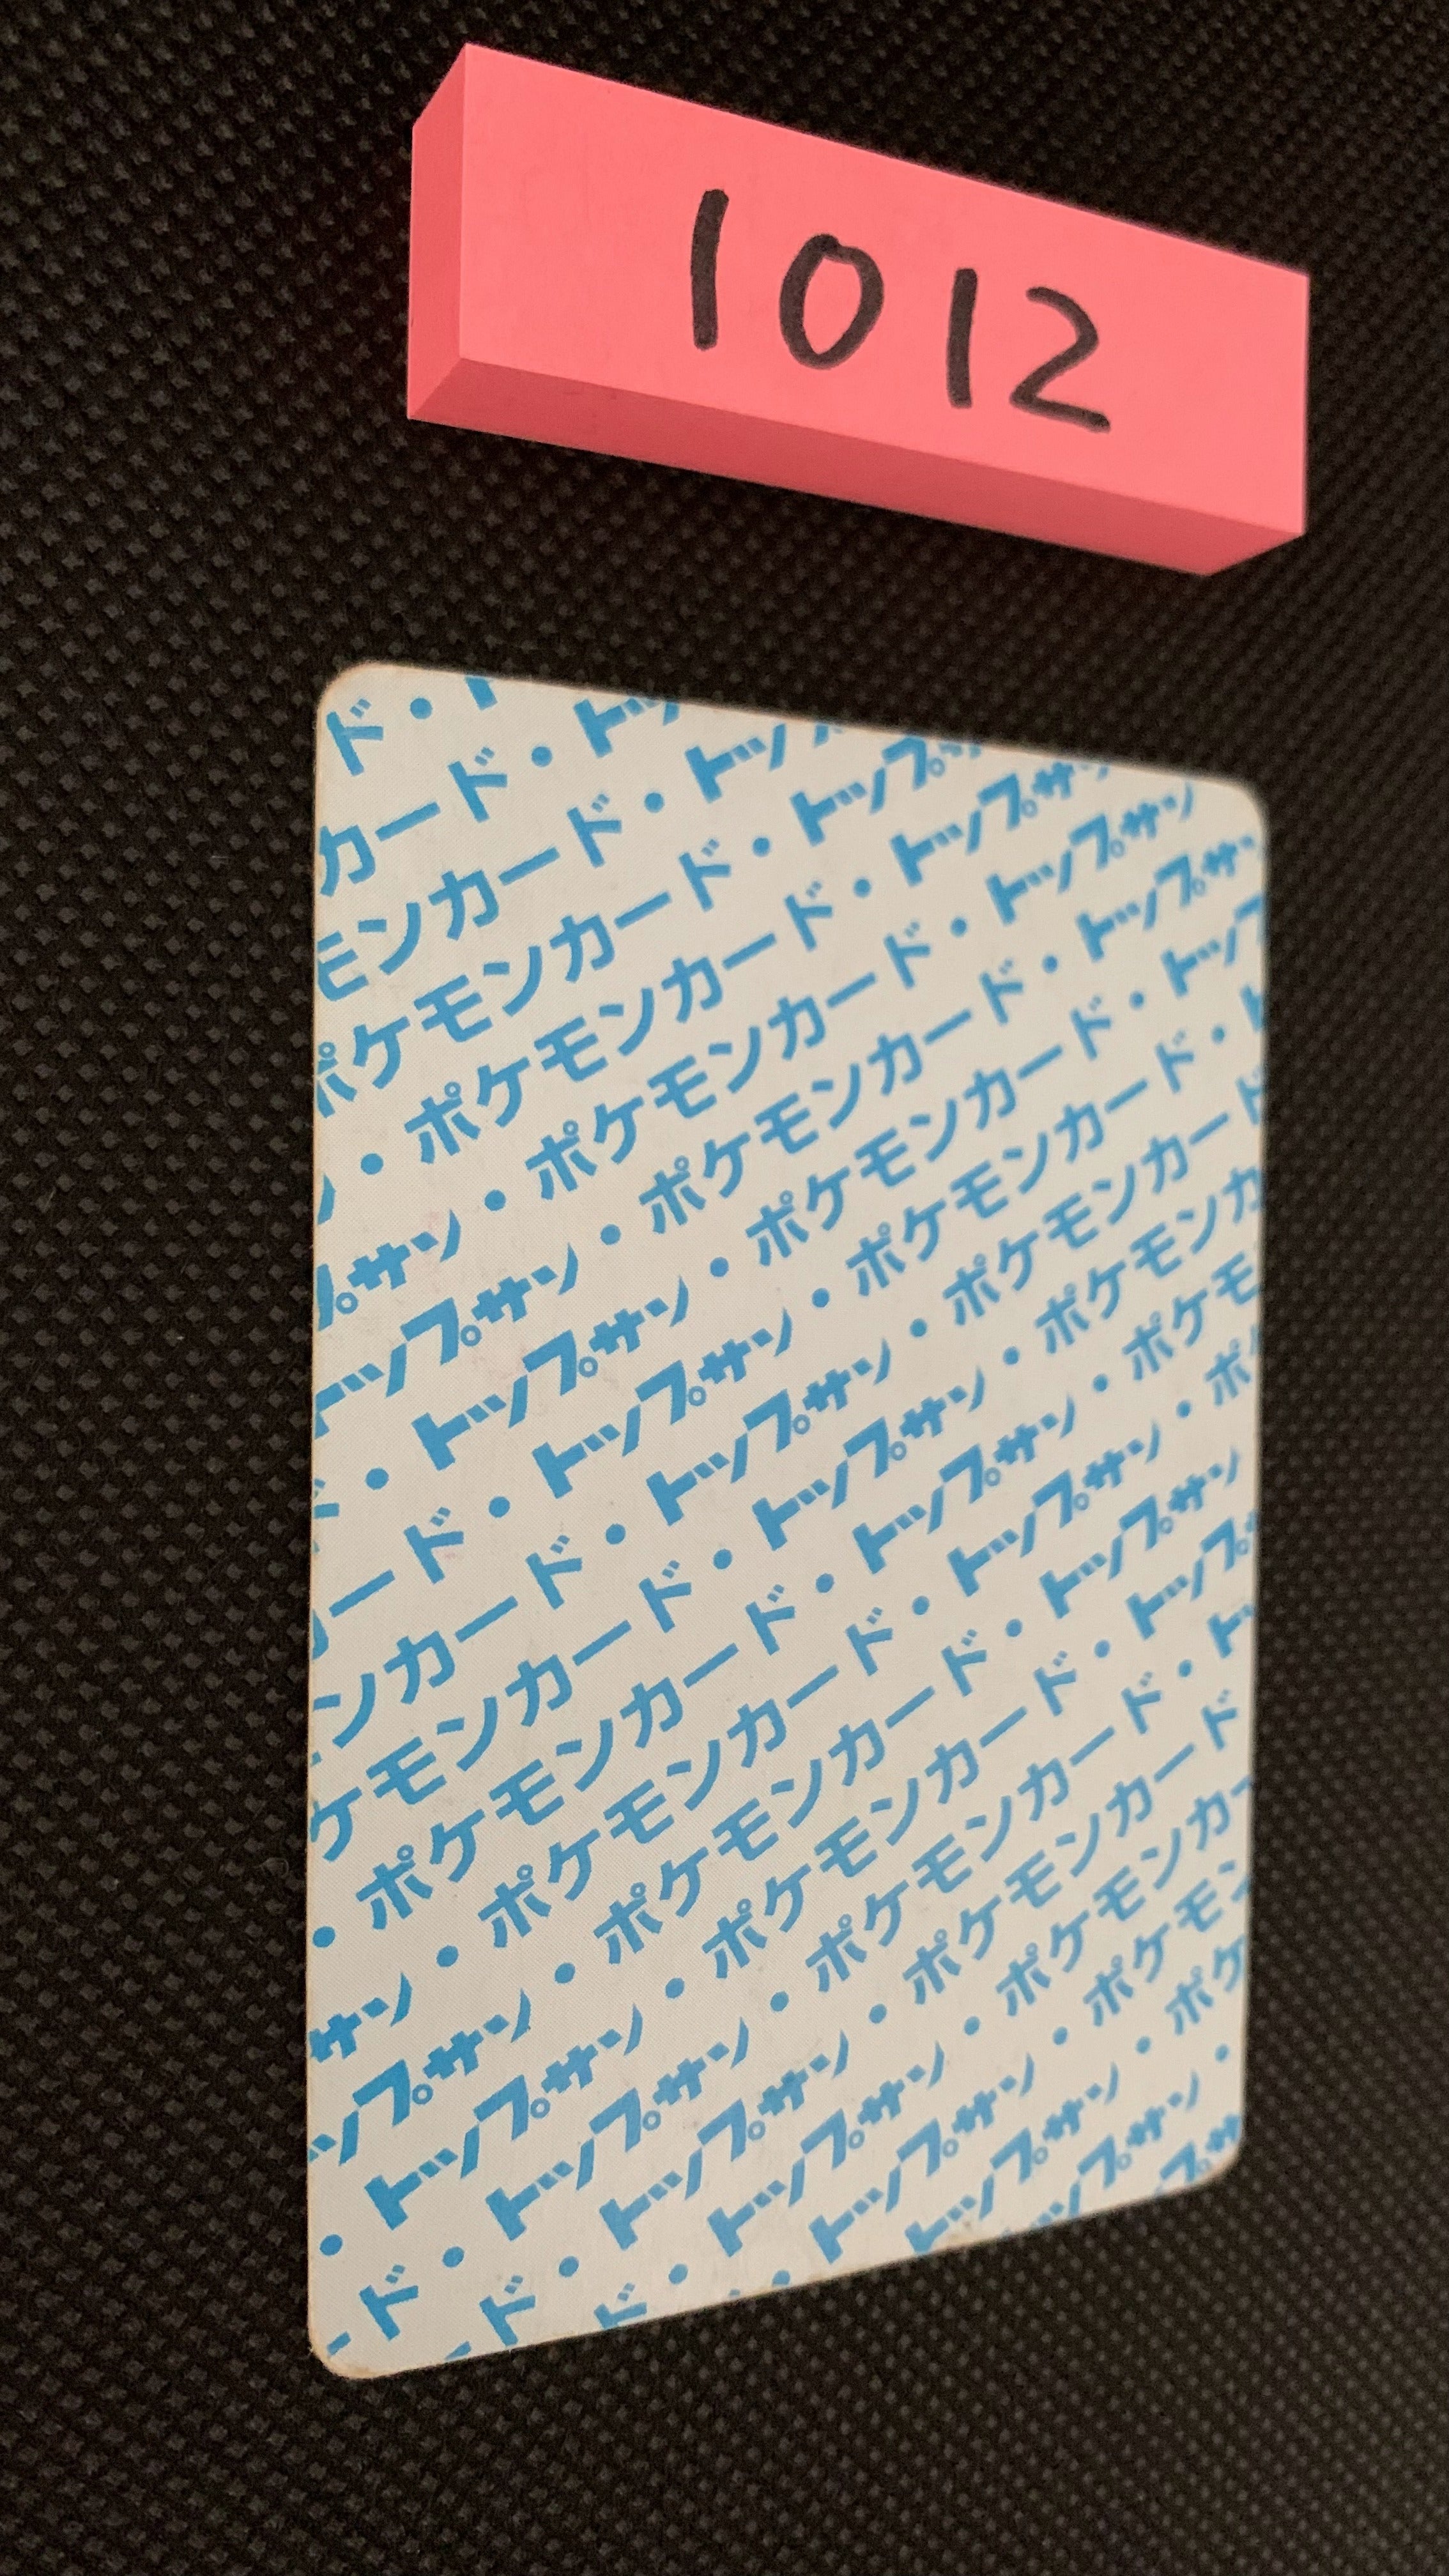 1012
ド・ト
カード・トッ
モンカード・トップ
ポケモンカード・トップ
・ポケモンカード・トップサ
プサン・ポケモンカード・トップサン
トップサン・ポケモンカード・トップサ
・トップサン・ポケモンカード・トップ
ード・トップサン・ポケモンカード・ト
ンカード・トップサン・ポケモンカード
ケモンカード・トップサン・ポケモンカ
・ポケモンカード・トップサン・ポケモ
サン・ポケモンカード・トップサン・ポ
ップサン・ポケモンカード・トップサン
・トップサン・ポケモンカード・トップ
ード・トップサン・ポケモンカード・ト
ド・トップサン・ポケモンカード
ド・トップサン・ポケモンカー
・トップサン・ポケモン
トップサン・ポケ
プサン・
プサ